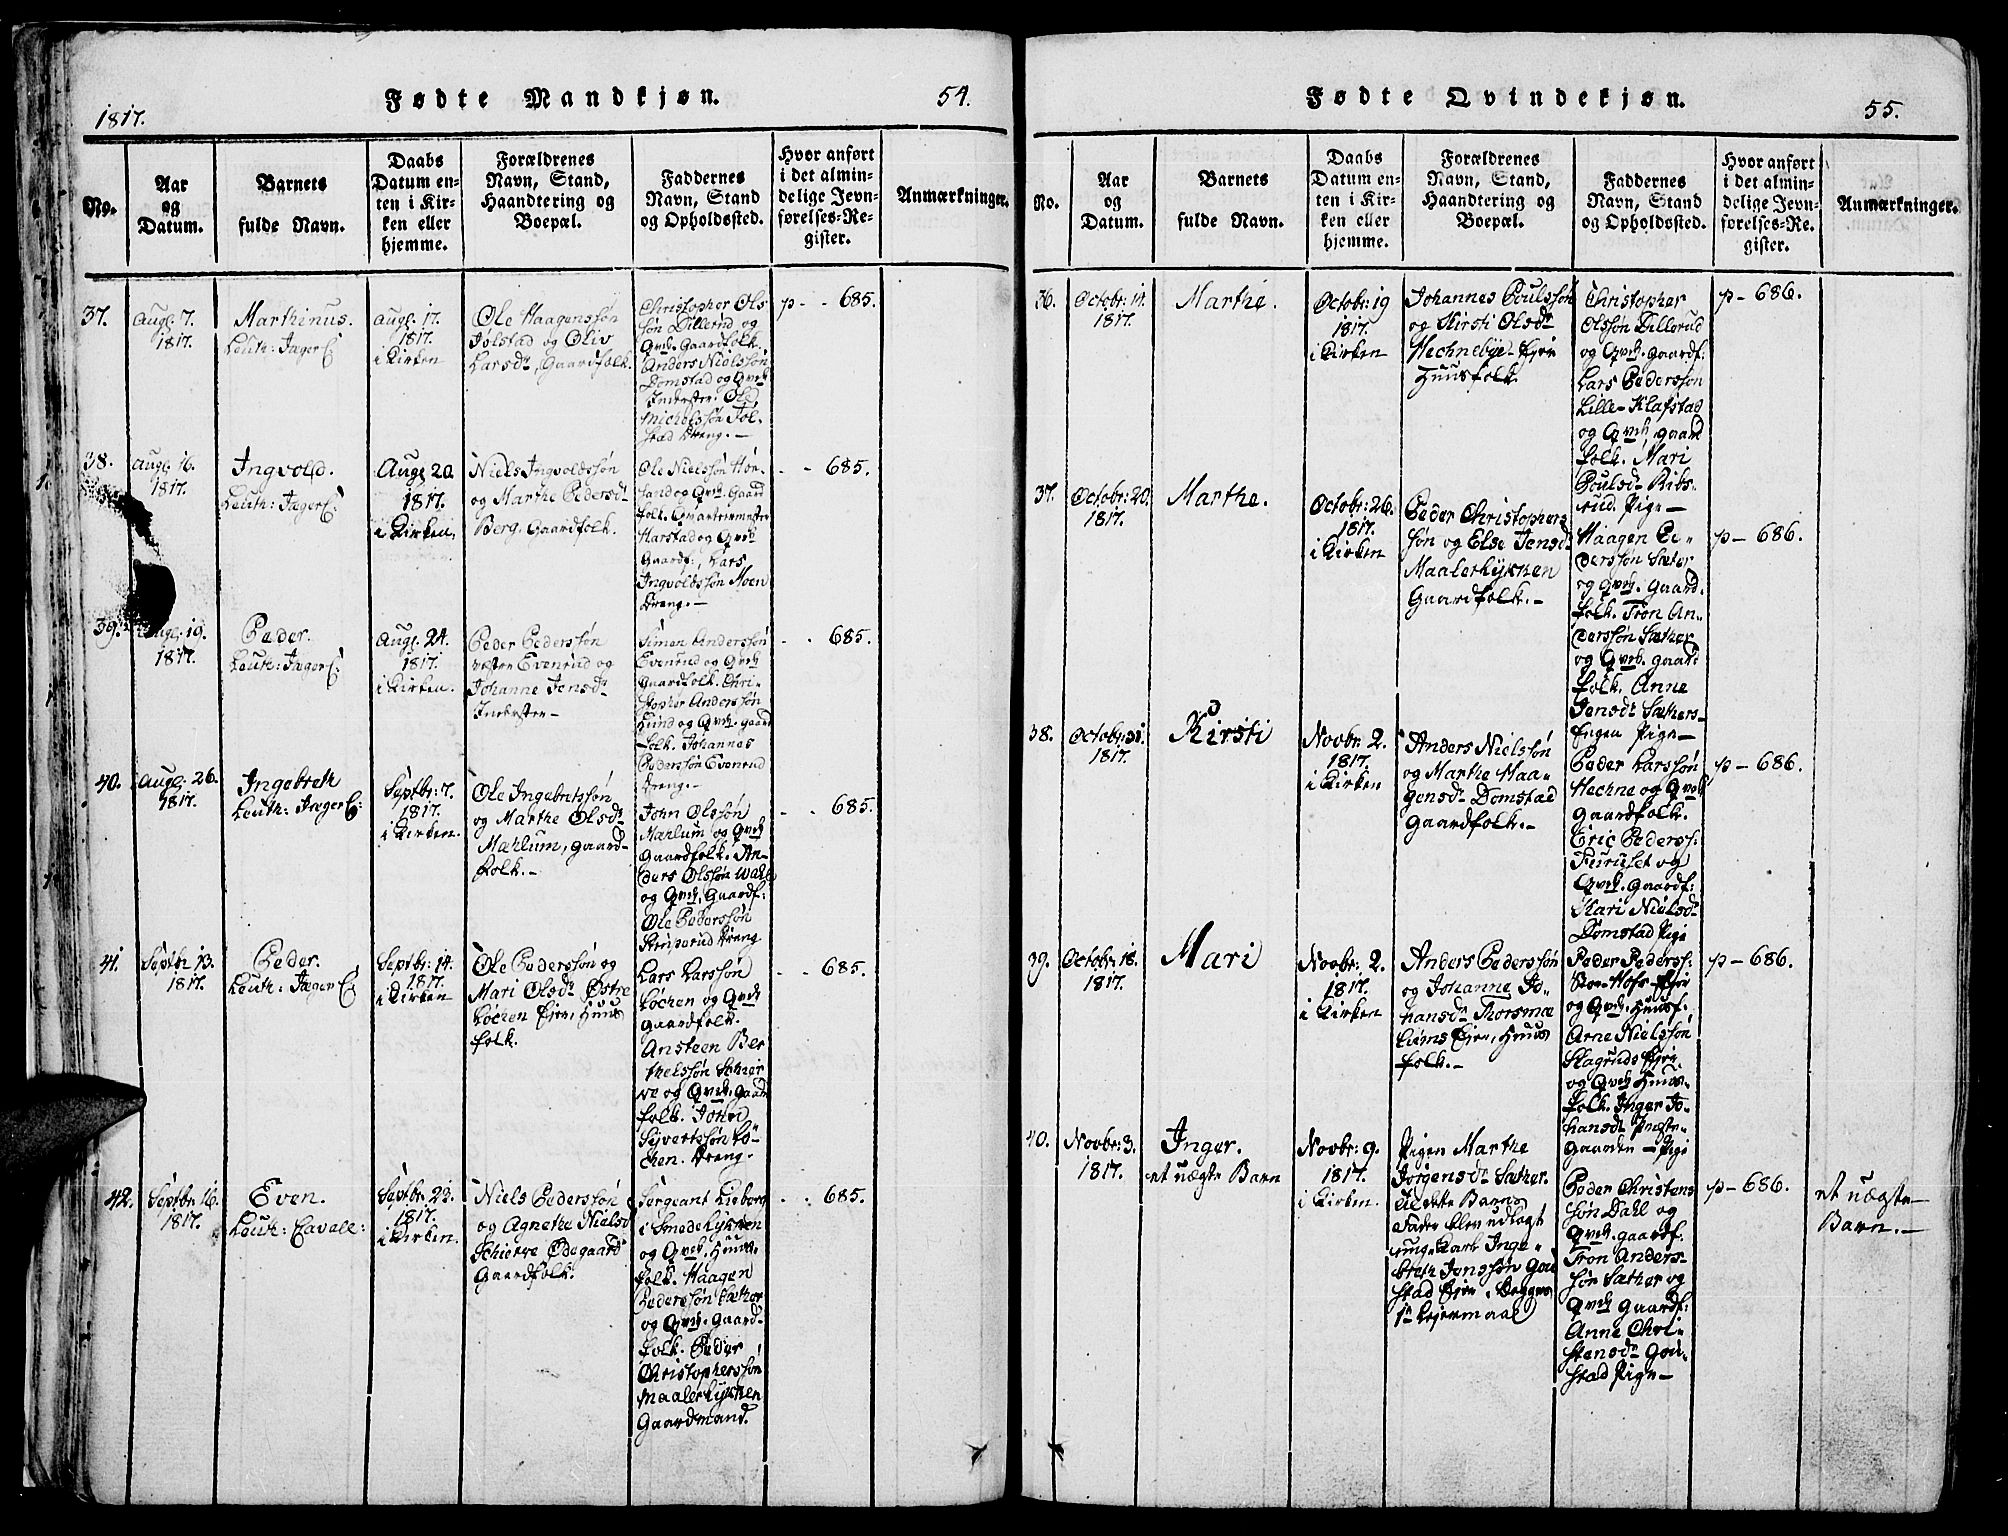 1817.
Fødte Mandkjøn.
54.
No.
Aar
og
Datum.
Barnets
fulde Navn.
Daabs
Datum en-
ten i Kir-
ken eller
hjemme.
Forældrenes
Navn, Stand,
Haandtering og
Boepæl.
Faddernes
Navn, Stand
og Opholdssted.
Hvor anført
i det almin-
delige Jevn-
førelses-Re-
gister.
Anmærkninger.
37.
Augl: 7.
1817.
Marthinus.
Leuth: Jæger C:
Augl: 17.
1817.
i Kirken
Ole Haagenssøn
Jolstad og Oliv
Larsdr, Gaardfolk.
Christopher Ols
søn Dillerud og
Qvk. Gaardfolk.
Anders Nielssøn
Domstad og Qvk
Inderster. Ole
Michelssøn Jol-
stad Dreng. —
p - - 685.
38.
Augl: 16.
1817.
Ingvold.
Leuth: Jæger C:
Augl: 20
1817.
i Kirken,
Niels Ingvoldssøn
og Marthe Pedersdr
Berg. Gaardfolk.
Ole Nielssøn Hør-
sand og Qvk. Gaard
folk. Qvarteermester
Harstad og Qvk
Gaardf:, Lars
Ingvoldssøn Moen
Dreng. —
- - 685.
39.
Augl: 19.
1817.
Peder.
Leuth: Jæger C:
Augl: 24.
1817.
i Kirken.
Peder Pederssøn
væstre Evenrud og
Johanne Jensdr
Inderster —
Siman Anderssøn
Evenrud og Qvk
gaardfolk. Chri-
stopher Anderssøn
Lund og Qvk. gaard
folk. Johannes
Pederssøn Evenrud
Dreng. —
- - 685.
40.
Augl: 26.
1817.
Ingebreth
Leuth: Jæger C:
Septbr: 7.
1817.
i Kirken.
Ole Ingebretssøn
og Marthe Olsdr
Mæhlum, gaard-
folk. —
John Olssøn
Mæhlum og Qvk
Gaardfolk. An-
ders Olssøn
og Qvk. Gaardf:
Ole Pederssøn
Dreng
- - 685.
41.
Septbr 13.
1817.
Peder.
Leuth: Jæger C:
Septbr: 14.
1817.
i Kirken
Ole Pederssøn og
Mari Olsdr Østre
Løchen Ejer, Huus
folk.
Lars Larssøn
Løchen og Qvk
gaardfolk.
Ansteen Ber
thelssøn Schier
ve og Qvk. gaard
folk. John
Syvertssøn Lø-
chen. Dreng —
- - 685.
42.
Septbr: 16.
1817.
Even.
Leuth: Cavall:
Septbr: 21.
1817.
i Kirken.
Niels Pederssøn
og Agnethe Nielsdr
Schierve Ødegaard
Gaardfolk.
Sergeant Lieborg
i Smedelykken
og Qvk. Huus-
folk. Haagen
Pederssøn Sæther
og Qvk. Gaard-
folk. Peder
Christopherssøn
Maalerlykken
Gaardmand.
- - 685.
Fødte Qvindekjøn.
55.
No.
Aar
og
Datum.
Barnets
fulde Navn.
Daabs
Datum en-
ten i Kir-
ken eller
hjemme.
Forældrenes
Navn, Stand,
Haandtering og
Boepæl.
Faddernes
Navn, Stand
og Opholdssted.
Hvor anført
i det almin-
delige Jevn-
førelses-Re-
gister.
Anmærkninger.
36.
Octobr: 14.
1817.
Marthe.
Octobr: 19
1817.
i Kirken
Johannes Poulssøn
og Kirsti Olsdr
Hechnebye-Ejer
Huusfolk.
Christopher
Olssøn Dillerud
og Qvk. gaardf:
Lars Pederssøn
Lille-Klafstad
og Qvk, gaard
folk. Mari
Poulsdr Ribs-
rud. Pige —
p - 686.
37.
Octobr: 20.
1817.
Marthe.
Octobr: 26.
1817.
i Kirken
Peder Christophers
søn og Else Jensdr
Maalerlykken
Gaardfolk. —
Haagen Pe-
derssøn Sæter
og Qvk. gaard-
folk. Tron An-
derssøn Sæther
og Qvk. gaard
folk. Anne
Jensdr Sæthers-
Engen Pige —
p - 686.
38.
Octobr: 31.
1817.
Kirsti
Novbr: 2.
1817.
i Kirken
Anders Nielssøn
og Marthe Haa-
gensdr Domstad
Gaardfolk. —
Peder Larssøn
Hechne og Qvk
Gaardfolk.
Eric Pederss:
Furuset og
Qvk. gaardf:
Kari Nielsdr
Domstad Pige
p - 686.
39.
Octobr: 18.
1817.
Mari
Novbr: 2.
1817.
i Kirken
Anders Pederssøn
og Johanne Jo-
hansdr Thorsmæ
Liems Ejer, Huus
folk. —
Peder Pederss:
Stor-Hofs-Ejer
og Qvk. Huusf.
Arne Nielssøn
Skagruds Ejer
og Qvk Huus-
folk. Inger Jo-
hansdr Præste-
gaarden - Pige
p - 686.
40.
Novbr: 3.
1817.
Inger.
et uægte Barn
Novbr: 9.
1817.
i Kirken
Pigen Marthe
Jørgensdr Sæther.
til dette Barns
Fader blev udlagt
ung-Karl Inge-
breth Jonssøn Gou
stad Ejer. Begges
1te Lejermaal
Peder Christens
søn Dahl og
Qvk. gaardf.
Tron Anders-
søn Sæther og
Qvk Gaardf:
Anne Chri-
stensdr Gou-
stad Pige —
p - 686.
et uægte
Barn. —